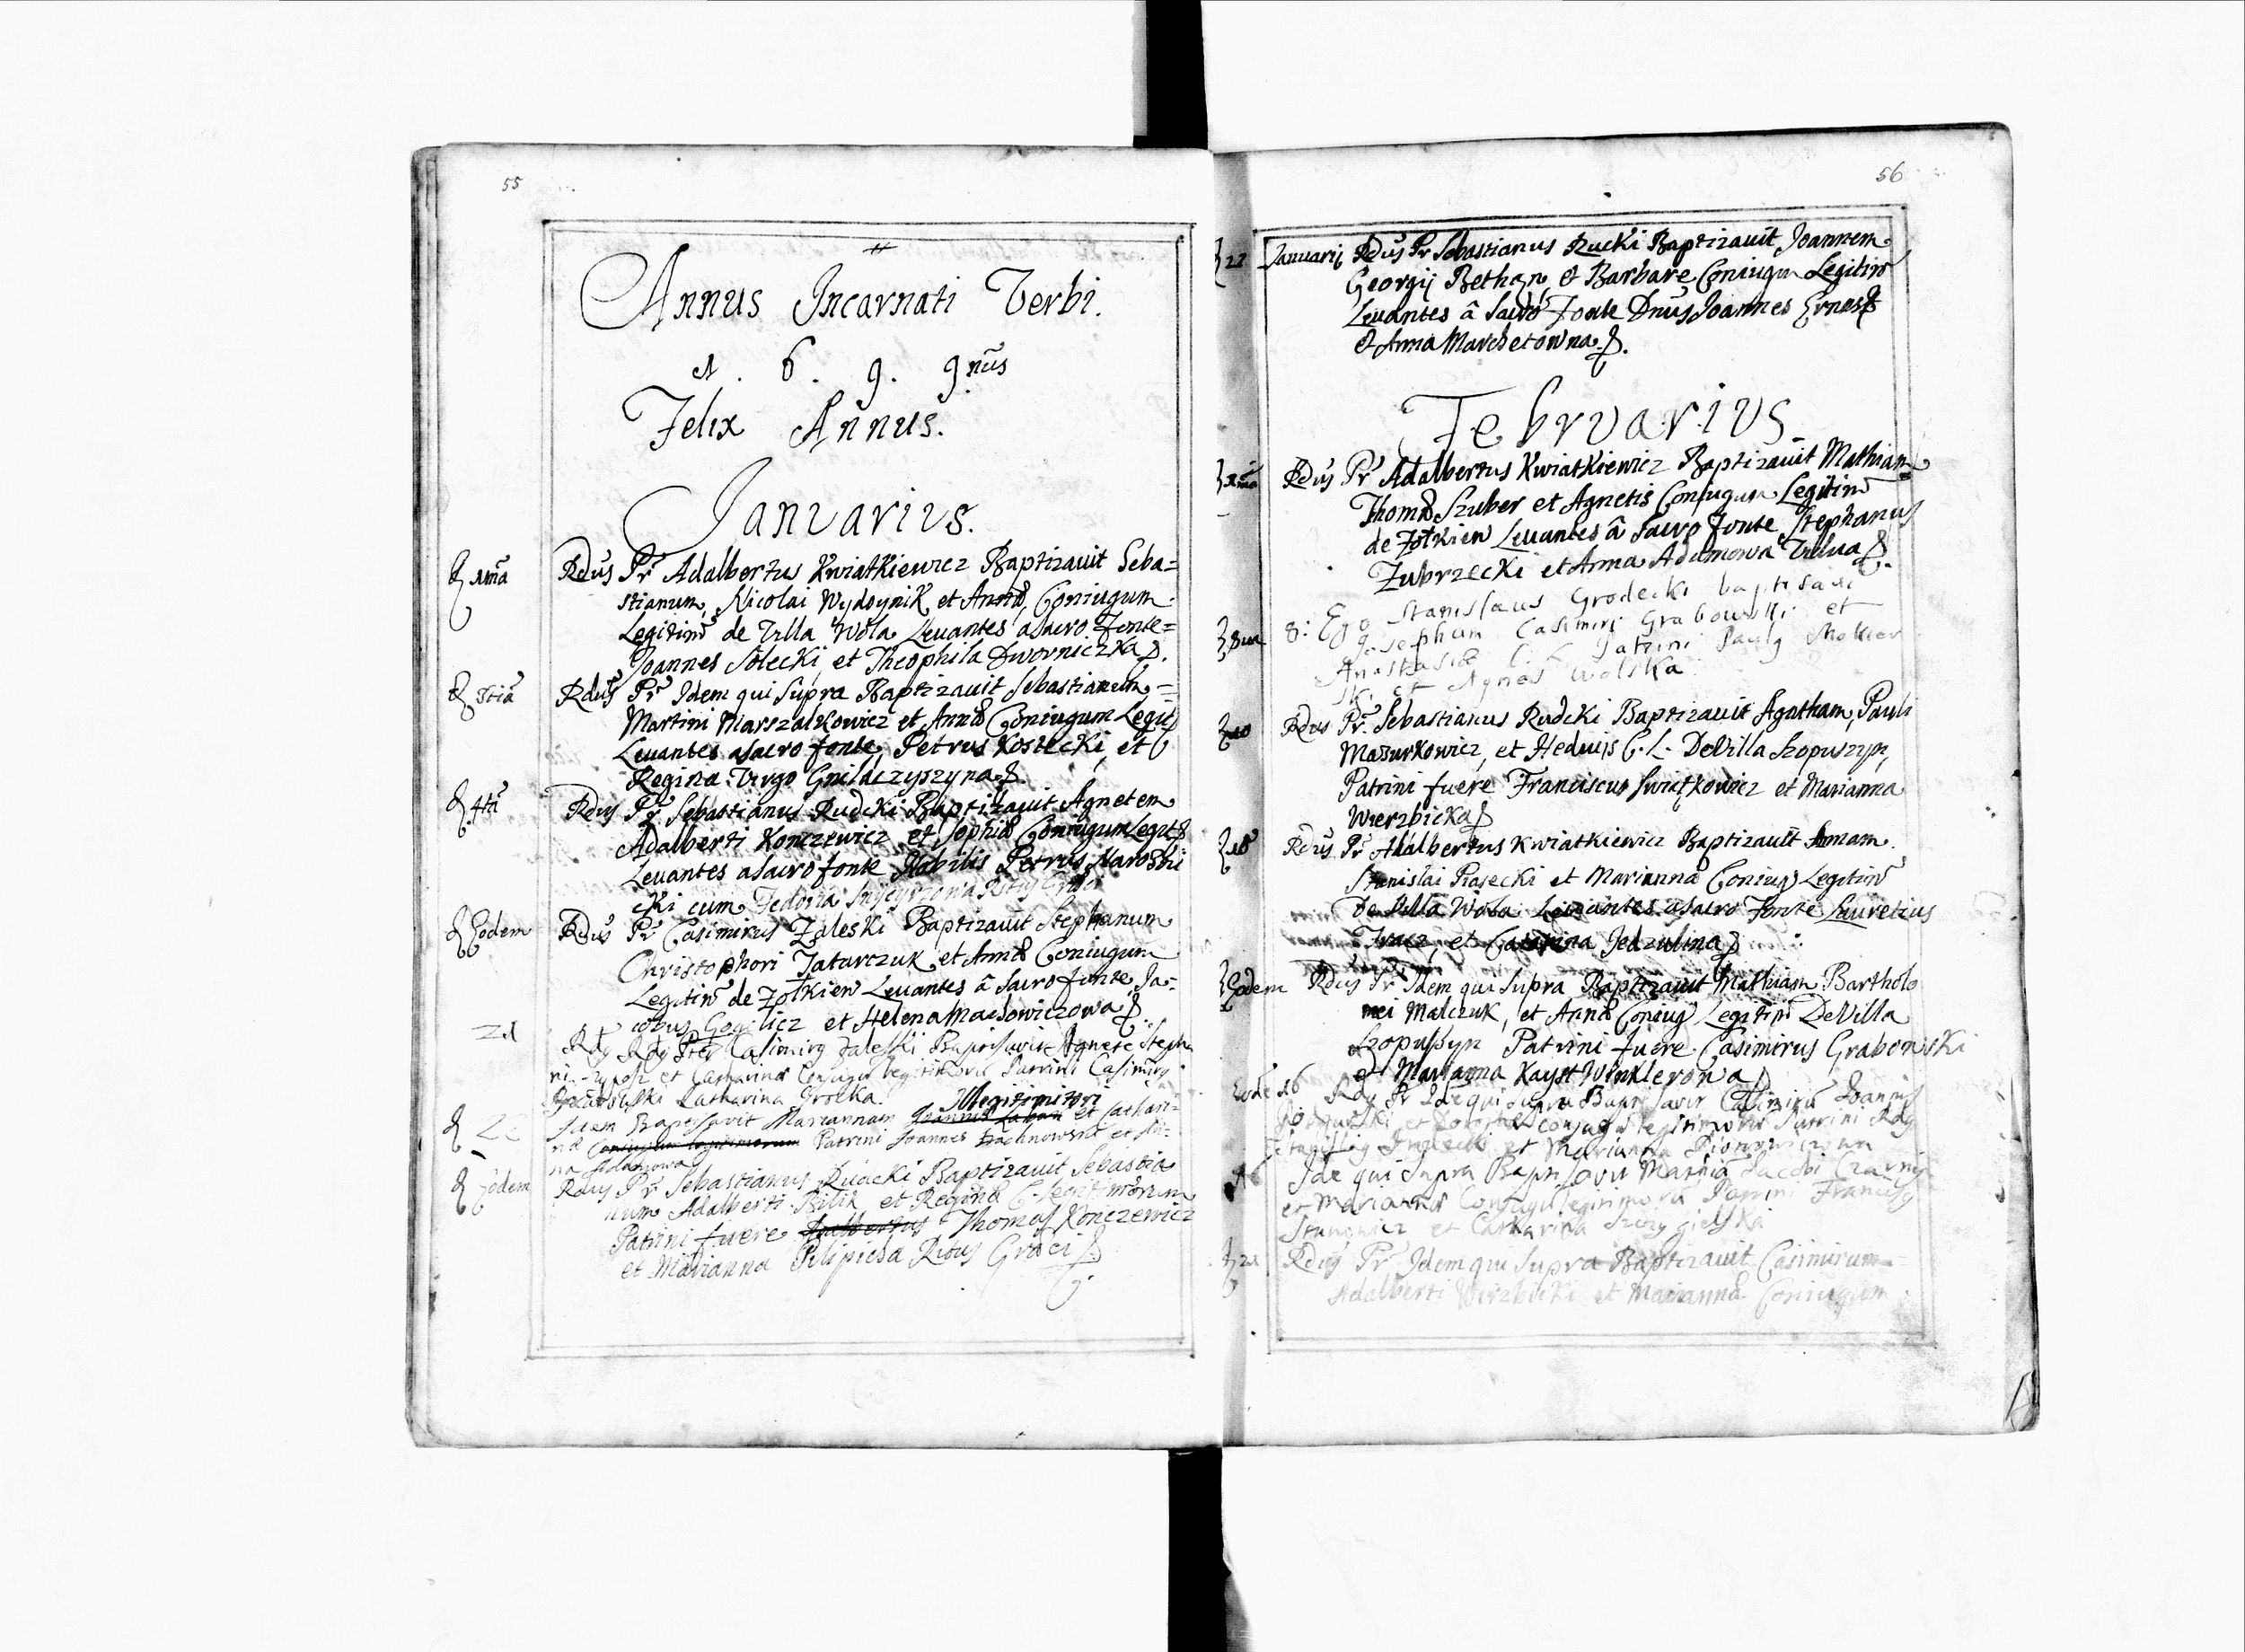 55
Annus Incarnati Verbi.
1. 6. 9. 9nus
Felix Annus.
Januarius.
1ma Rdus Pr Adalbertus Kwiatkiewicz Baptizauit Seba=
stianum, Nicolai Wydoynik et Annæ, Coniugum
Legitim de Villa Wola Leuantes a sacro Fonte=
Joannes Solecki et Theophila Dworniczka
3tia Rdus Pr Idem qui supra Baptizauit Sebastianum=
Martini Marszalkowicz et Annæ Coniugum Legit
Leuantes a sacro fonte, Petrus Kostecki, et
Regina Virgo Gnilaczyszyna
4ta Rdus Pr Sebastianus Rudcki Baptizauit Agnetem
Adalberti Konczewicz et Sophiæ Coniugum Legit
Leuantes a sacro fonte Nobilis Petrus
cki cum Fedora Ritus
Eodem Rdus Pr Casimirus Zaleski Baptizauit Stephanum
Christophori Tatarczuk et Annæ Coniugum
Legitim de Zolkiew Leuantes â sacro fonte Ja=
cobus Gogilicz et Helena Machowiczowa
21 Rdg Rdg Pter Casimirg Zaleski Baptisavit Agnete Stepha
ni et Catharinæ Conjugu legitimoru Patrini Casimirg
Catharina Grocka.
Illegitimitori
22 Idem Baptisavit Mariannam Joannis et Cathari=
næ Coniugum legitimorum Patrini Joannes et An=
na Adamowa
Eodem Rdus Pr Sebastianus Rudcki Baptizauit Sebastia
num Adalberti Bilik et Reginæ C. Legitimorum
Patrini fuere Adalbertus Thomas Konczewicz
et Marianna Pilipicha Ritus Græci
56
22 Januarij Rdus Pr Sebastianus Rucki Baptizauit Joannem
Georgij Bethan, et Barbare Coniugum Legitim
Leuantes â sacro Fonte Dnus Joannes Ernest
et Anna Marchetowna
Februarius
1ma Rdus Pr Adalbertus Kwiatkiewicz Baptizauit Mathiam
Thomæ Szuber et Agnetis Conjugum Legitim
de Zolkiew Leuantes â sacro fonte Stephanus
Zubrzecki et Anna Adamowa Vidua
8ua 8: Ego Stanislaus Grodecki baptisavi
Josephum Casimiri Grabowski et
Anastasiæ C. L. Patrini Paulg
ski et Agnes Wolska
10 Rdus Pr Sebastianus Rudcki Baptizauit Agatham, Pauli
Mazurkowicz, et Heduis C. L. De Villa Szopuszyn,
Patrini fuere Franciscus Swiątkowicz et Marianna
Wierzbicka
15 Rdus Pr Adalbertus Kwiatkiewicz Baptizauit Annam
Stanislai Piasecki et Mariannæ Coniug Legitim
De Villa Wola Leuantes a sacro Fonte Lauretius
Tracz, et Catarina Jedzulina
Eodem Rdus Pr Idem qui supra Baptizauit Mathiam Bartholo
mei Malczuk, et Annæ Coniug Legitim De Villa
Szopuszyn Patrini fuere Casimirus Grabowski
et Marianna Kayst Winklerowa
Eode 16 Rdg Pr Ide qui supra Baptisavit Casimiru Joannis
et conjugu legitimoru Patrini Rdg
Stanislg et Marianna
16 Ide qui supra Baptisavit Mathia Jacobi Czarny
et Mariannæ Conjugu legitimoru Patrini Franciscg
et Catharina
21 Rdus Pr Idem qui supra Baptizauit Casimirum=
Adalberti Wirzbicki et Mariannæ Coniugum